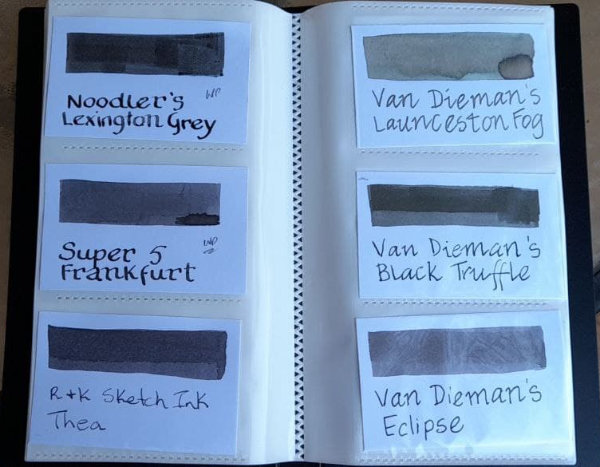 Noodler's
WP
Lexington Grey
Super 5
WP
Frankfurt
R + K Sketch Ink
Thea
Van Dieman's
Launceston Fog
Van Dieman's
Black Truffle
Van Dieman's
Eclipse